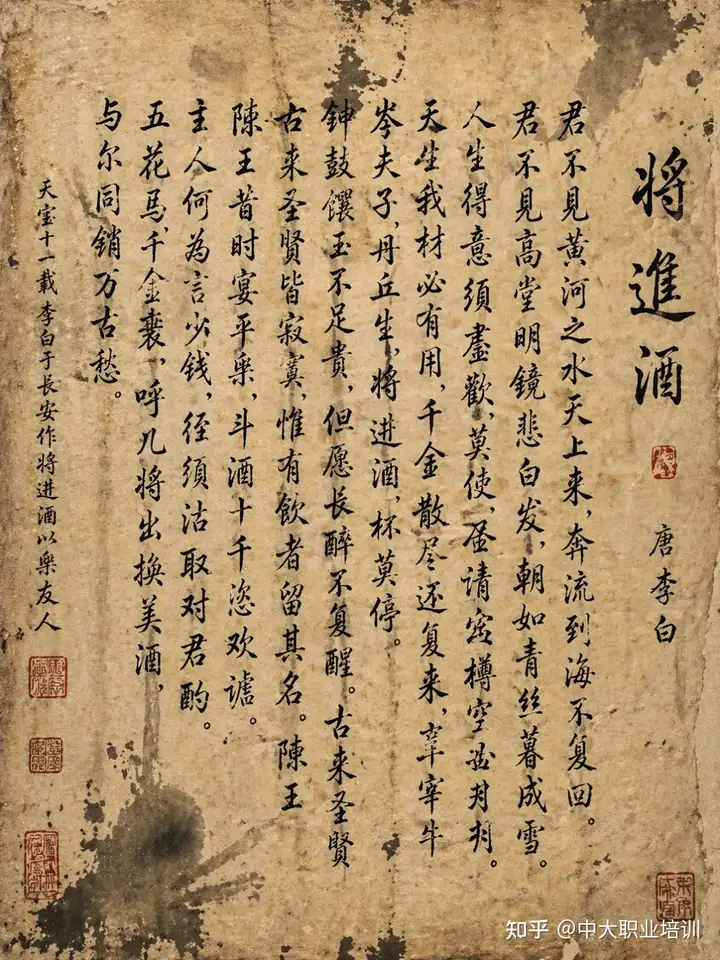 將進酒
唐李白
君不見黄河之水天上来，奔流到海不复回。
君不見高堂明鏡悲白发，朝如青丝暮成雪。
人生得意須盡歡，莫使，请樽空
天生我材必有用，千金散尽还复来，宰牛
岑夫子，丹丘生，将进酒，杯莫停。
钟鼓饌玉不足貴，但愿长醉不复醒。古来圣賢
古来圣賢皆寂寞，惟有飲者留其名。陳王
陳王昔时宴平乐，斗酒十千恣欢谑。
主人何為言少钱，径須沽取对君酌。
五花馬，千金裘，呼儿将出换美酒，
与尔同銷万古愁。
天宝十一載李白于長安作将进酒以樂友人
知乎 @中大职业培训